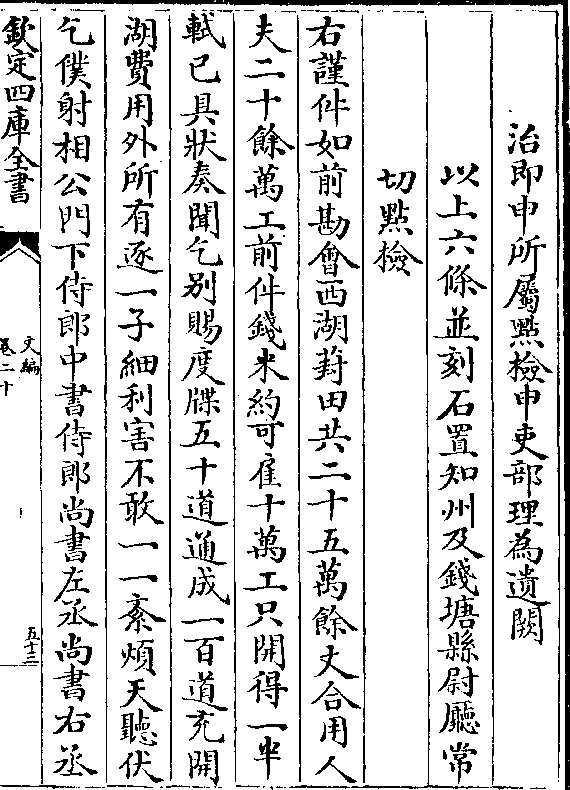 治即申所屬點檢申吏部理為遺闕
以上六條並刻石置知州及錢塘縣尉廳常
切點檢
右謹件如前勘會西湖葑田共二十五萬餘丈合用人
夫二十餘萬工前件錢米約可雇十萬工只開得一半
軾已具狀奏聞乞别賜度牒五十道通成一百道充開
湖費用外所有逐一子細利害不敢一一紊煩天聽伏
乞僕射相公門下侍郎中書侍郎尚書左丞尚書右丞
欽定四庫全書
文編
卷二十
五十三